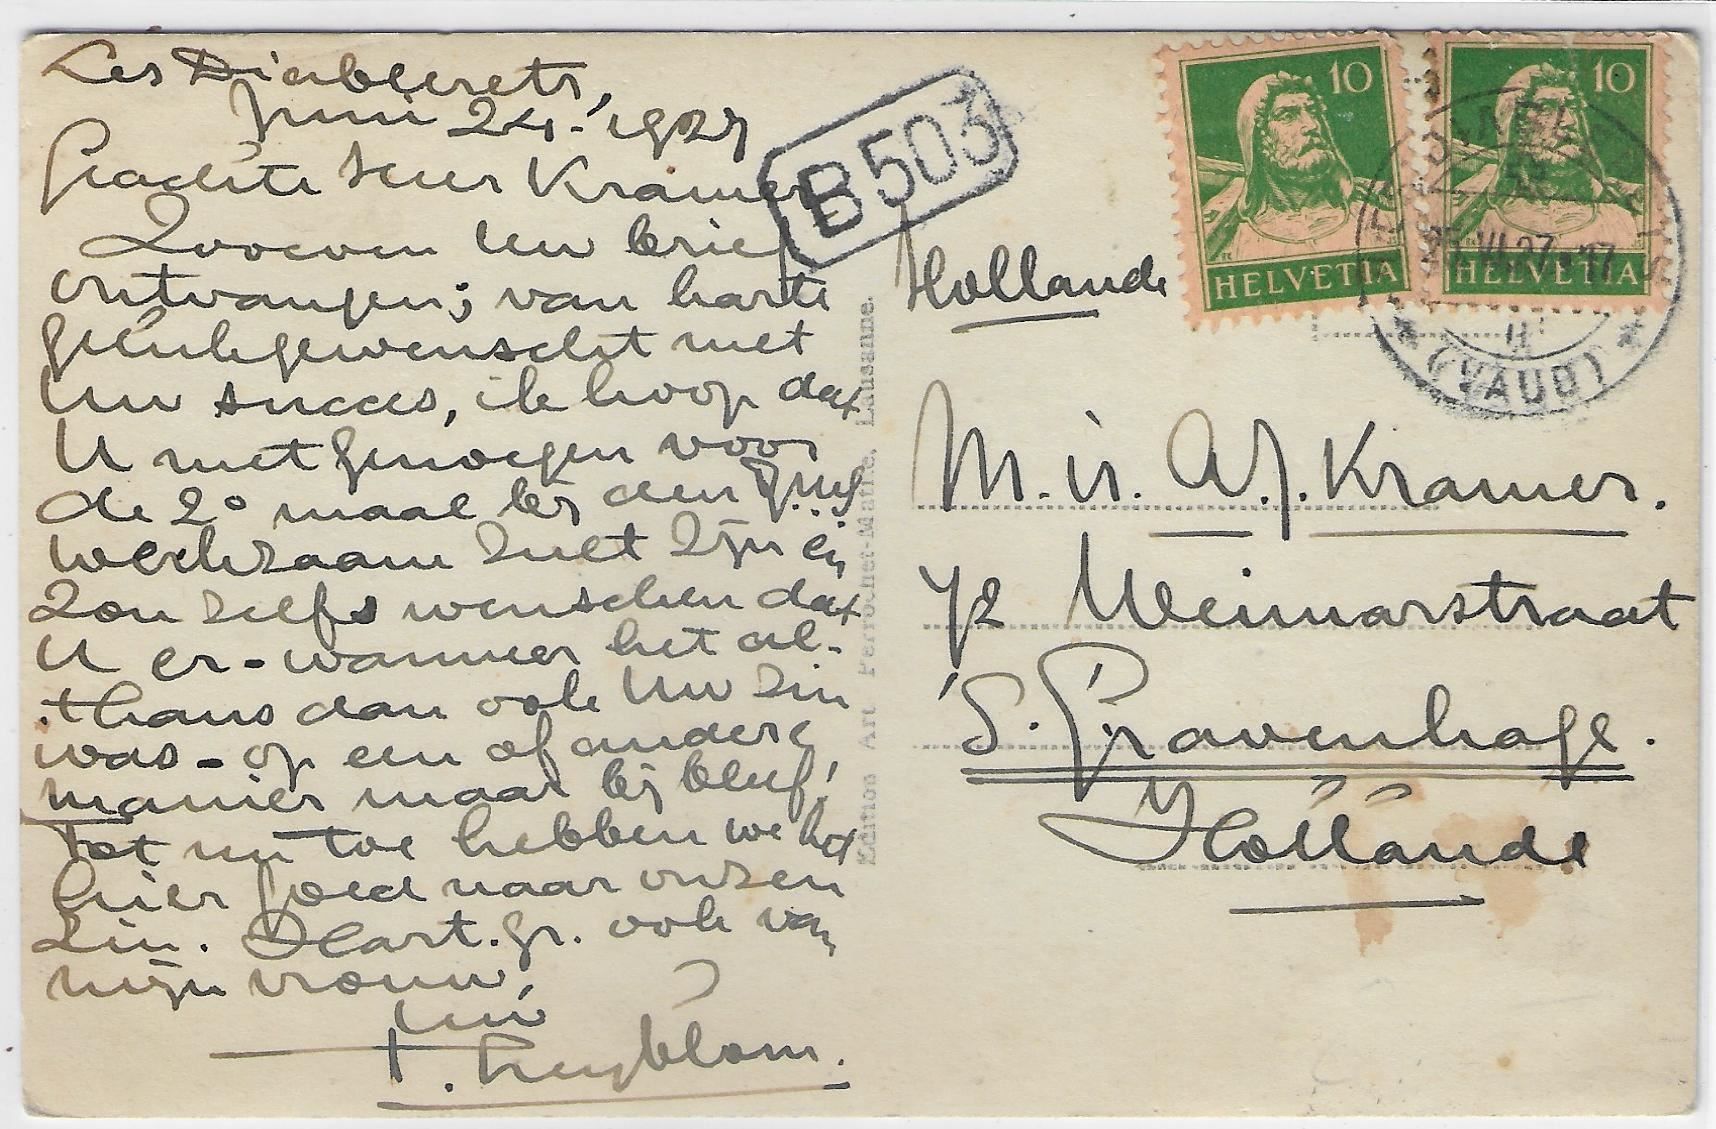 Les Diablerets,
Juni 24. 1927
Geachte Heer Kramer
Zooeven Uw brief
ontvangen; van harte
gelukgewenscht met
Uw succes, ik hoop dat
U met genoegen voor
de 2e maal bij den
werkzaam zult zijn en
zou zelfs wenschen dat
U er - wanneer het al-
thans dan ook Uw zin
was - op een of andere
manier maar bij bleef!
Tot nu toe hebben we het
hier goed naar onzen
zin. Hart. gr. ook van
mijn vrouw,
Uw
Edition Art Perrochet-Matile, Lausanne.
B503
10
HELVETIA
10
HELVETIA
LES DIABLERETS
VI.27.17
(VAUD)
Hollande
M. ir. A.J. Kramer.
72 Weimarstraat
'S. Gravenhage.
Hollande